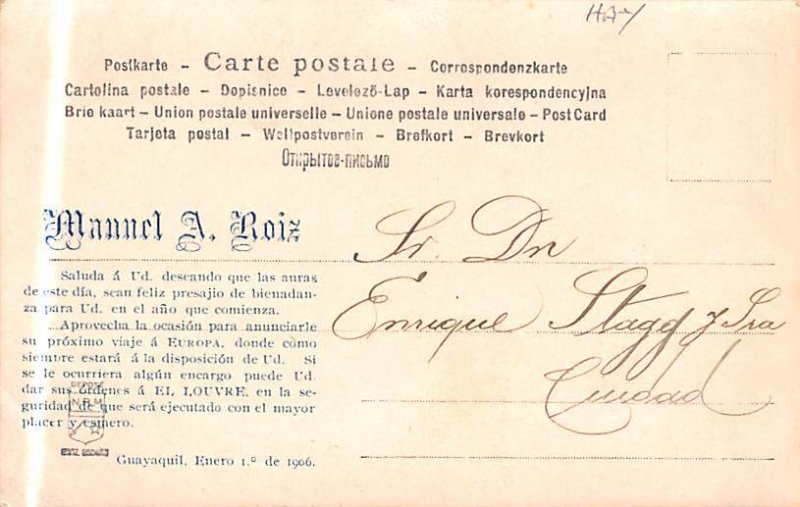 HA-Y
Postkarte - Carte postale - Correspondenzkarte
Cartolina postale - Dopisnice - Levelező-Lap - Karta korespondencyjna
Brie kaart - Union postale universelle - Unione postale universale - Post Card
Tarjeta postal - Weltpostverein - Brefkort - Brevkort
Открытое-письмо
Manuel A. Roiz
Saluda á Ud. deseando que las auras
de este día, sean feliz presajio de bienadan-
za para Ud. en el año que comienza.
Aprovecha la ocasión para anunciarle
su próximo viaje á EUROPA, donde como
siempre estará á la disposición de Ud. Si
se le ocurriera algún encargo puede Ud.
dar sus órdenes á EL LOUVRE, en la se-
guridad de que será ejecutado con el mayor
placer y esmero.
Guayaquil, Enero 1.º de 1906.
DEPOSÉ
N.P.M
Sr. Dn
Enrique Stagg y Sra
Ciudad